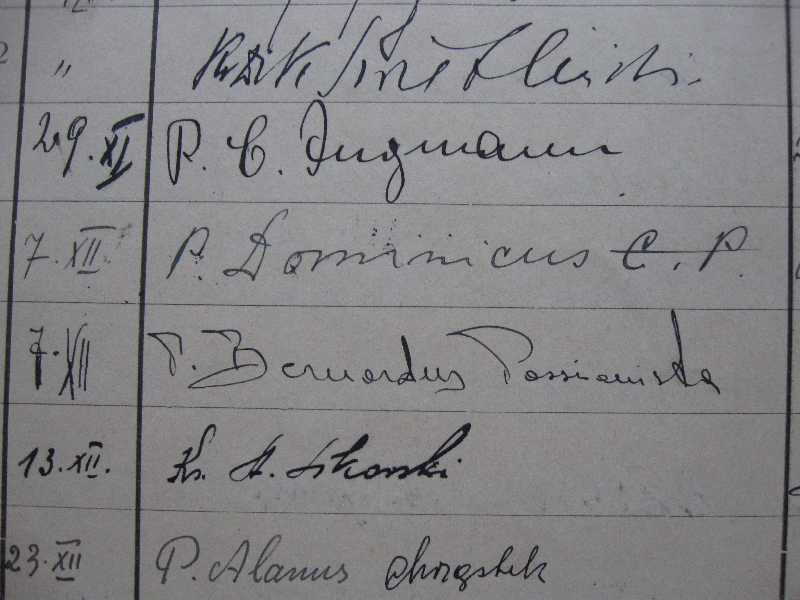 "
29.XI P. C. Jugmann
7.XII P. Dominicus C.P.
7.XII P. Bernardus Passionista
13.XII. Ks. A. Sikorski
23.XII P. Alanus